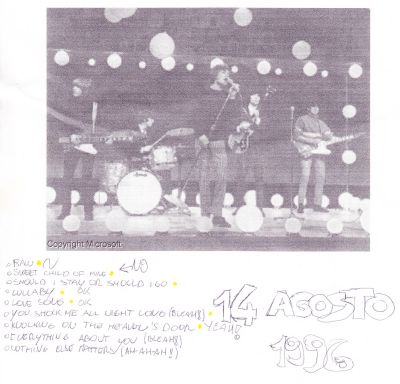 Copyright Microsoft
SWEET CHILD OF MINE NO
SHOULD I STAY OR SHOULD I GO
LULLABY OK
LOVE SONG OK
YOU SHOOK ME ALL NIGHT LONG (BLEAH!!)
KNOCKING ON THE HEAVEN'S DOOR YEAH!
EVERYTHING ABOUT YOU (BLEAH!!)
NOTHING ELSE MATTERS (AH-AH-AH!!)
14 AGOSTO
1996